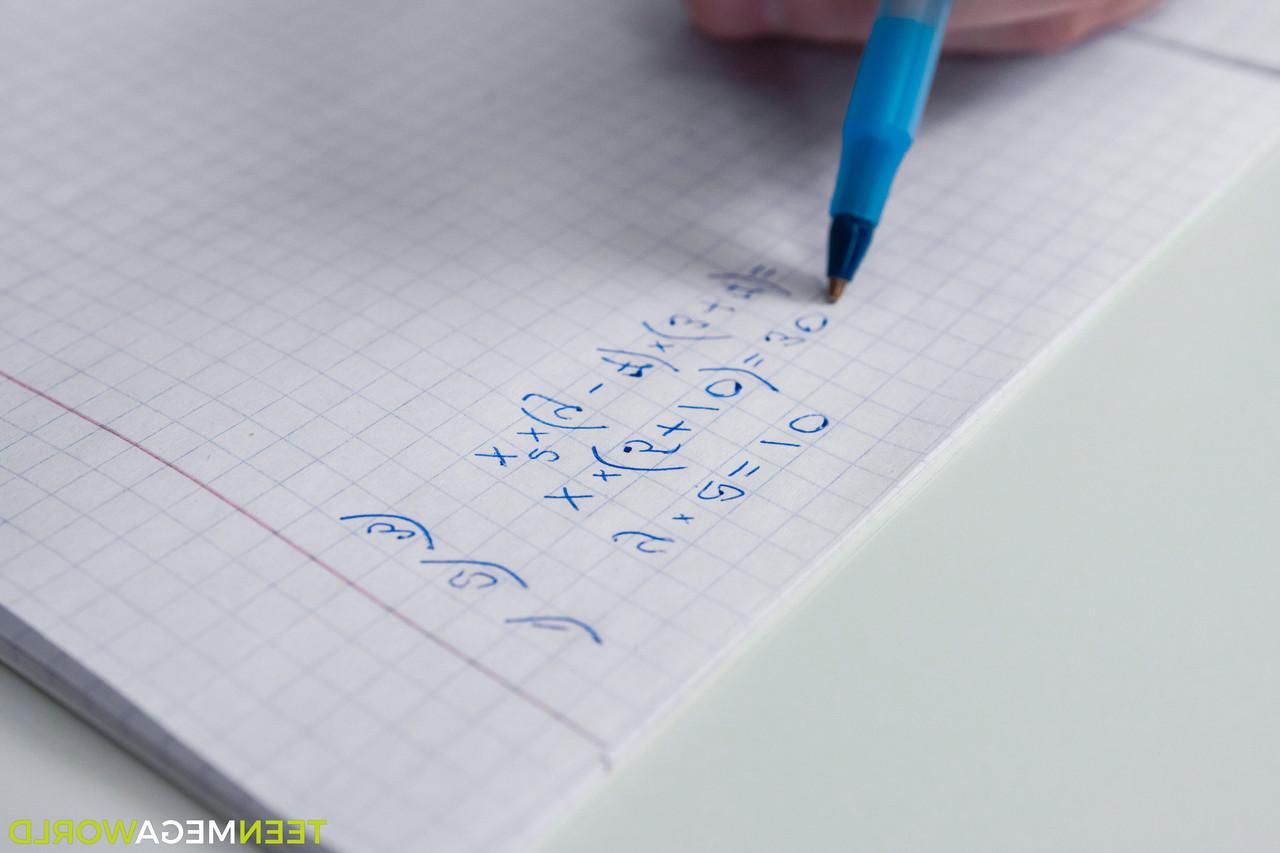 1) 2 × 5 = 10
2) x × (2 + 10) = 30
3) x × (2 - 4) × (3 + 4) =
TEENMEGAWORLD